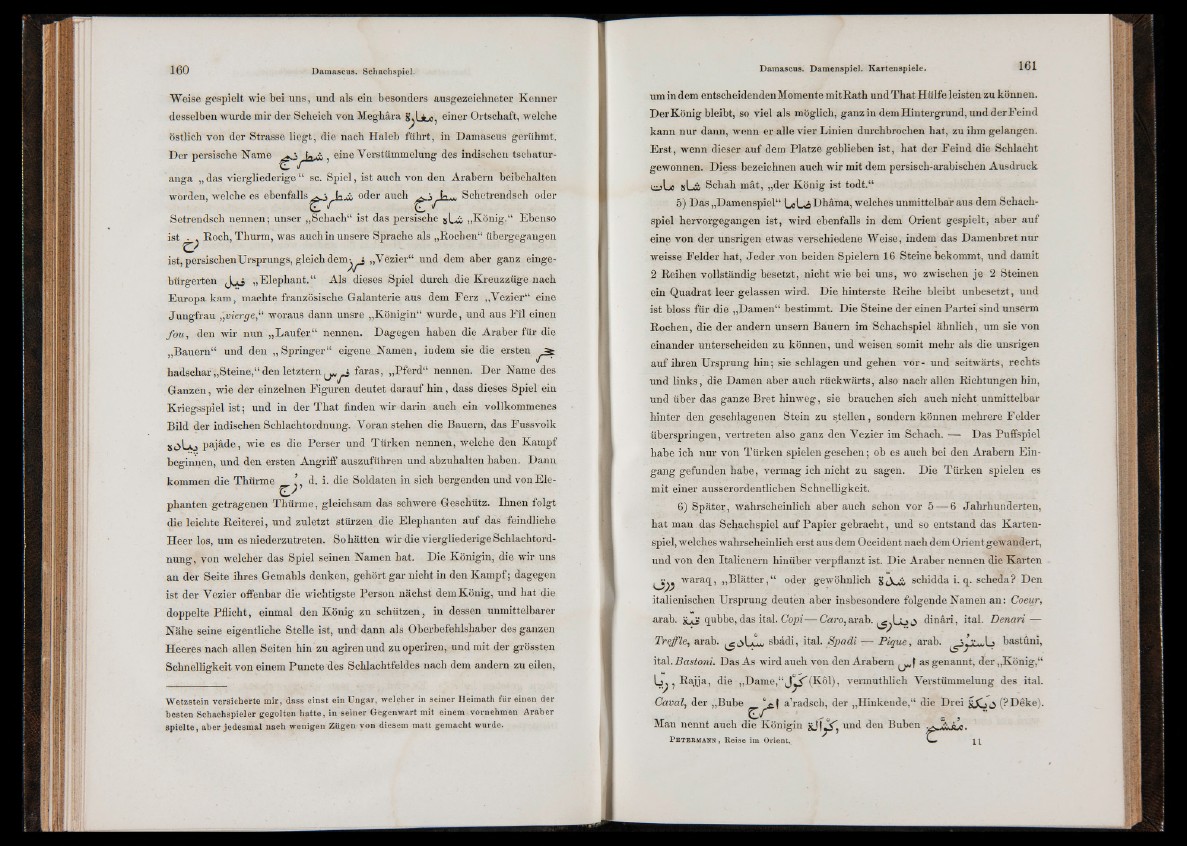 160
Damascus. Schachspiel.
Weise gespielt wie bei uns, und als ein besonders ausgezeichneter Kenner
desselben wurde mir der Scheich von Meghâra مغارة, einer Ortschaft, welche
östlich von der Strasse liegt, die nach Haleb führt, in Damascus gerühmt.
Der persische Name شطرنج, eine Verstümmelung des indischen tschatur-
anga „das viergliederige“ sc. Spiel, ist auch von den Arabern beibehalten
worden, welche es ebenfalls شطرنج oder auch سطرنج Schetrendsch oder
Setrendsch nennen; unser „Schach“ ist das persische شاه „König.“ Ebenso
ist رخ Roch, Thurm, was auch in unsere Sprache als „Rochen“ übergegangen
ist, persischen Ursprungs, gleich dem فرز „Vezier“ und dem aber ganz einge-
bürgerten فيل „Elephant.“ Als dieses Spiel durch die Kreuzzüge nach
Europa kam, machte französische Galanterie aus dem Ferz „Vezier“ eine
Jungfrau „vierge,“ woraus dann unsre „Königin“ wurde, und aus Fîl einen
fou, den wir nun „Laufer“ nennen. Dagegen haben die Araber für die
„Bauern“ und den „Springer“ eigene Namen, indem sie die ersten حجر
hadschar „Steine,“ den letztern فرس faras, „Pferd“ nennen. Der Name des
Ganzen, wie der einzelnen Figuren deutet darauf hin, dass dieses Spiel ein
Kriegsspiel ist; und in der That finden wir darin auch ein vollkommenes
Bild der indischen Schlachtordnung. Voran stehen die Bauern, das Fussvolk
پياده pajâde, wie es die Perser und Türken nennen, welche den Kampf
beginnen, und den ersten Angriff auszuführen und abzuhalten haben. Dann
kommen die Thürme رخ, d. i. die Soldaten in sich bergenden und von Ele-
phanten getragenen Thürme, gleichsam das schwere Geschütz. Ihnen folgt
die leichte Reiterei, und zuletzt stürzen die Elephanten auf das feindliche
Heer los, um es niederzutreten. So hätten wir die viergliederige Schlachtord-
nung, von welcher das Spiel seinen Namen hat. Die Königin, die wir uns
an der Seite ihres Gemahls denken, gehört gar nicht in den Kampf; dagegen
ist der Vezier offenbar die wichtigste Person nächst dem König, und hat die
doppelte Pflicht, einmal den König zu schützen, in dessen unmittelbarer
Nähe seine eigentliche Stelle ist, und dann als Oberbefehlshaber des ganzen
Heeres nach allen Seiten hin zu agiren und zu operiren, und mit der grössten
Schnelligkeit von einem Puncte des Schlachtfeldes nach dem andern zu eilen,
Wetzstein versicherte mir, dass einst ein Ungar, welcher in seiner Heimath für einen der
besten Schachspieler gegolten hatte, in seiner Gegenwart mit einem vornehmen Araber
spielte, aber jedesmal nach wenigen Zügen von diesem matt gemacht wurde.
Damascus. Damenspiel. Kartenspiele.
161
um in dem entscheidenden Momente mit Rath und That Hülfe leisten zu können.
Der König bleibt, so viel als möglich, ganz in dem Hintergrund, und der Feind
kann nur dann, wenn er alle vier Linien durchbrochen hat, zu ihm gelangen.
Erst, wenn dieser auf dem Platze geblieben ist, hat der Feind die Schlacht
gewonnen. Diess bezeichnen auch wir mit dem persisch-arabischen Ausdruck
شاه مات Schah mât, „der König ist todt.“
5) Das „Damenspiel“ ضاما Dhâma, welches unmittelbar aus dem Schach-
spiel hervorgegangen ist, wird ebenfalls in dem Orient gespielt, aber auf
eine von der unsrigen etwas verschiedene Weise, indem das Damenbret nur
weisse Felder hat, Jeder von beiden Spielern 16 Steine bekommt, und damit
2 Reihen vollständig besetzt, nicht wie bei uns, wo zwischen je 2 Steinen
ein Quadrat leer gelassen wird. Die hinterste Reihe bleibt unbesetzt, und
ist bloss für die „Damen“ bestimmt. Die Steine der einen Partei sind unserm
Rochen, die der andern unsern Bauern im Schachspiel ähnlich, um sie von
einander unterscheiden zu können, und weisen somit mehr als die unsrigen
auf ihren Ursprung hin; sie schlagen und gehen vor- und seitwärts, rechts
und links, die Damen aber auch rückwärts, also nach allen Richtungen hin,
und über das ganze Bret hinweg, sie brauchen sich auch nicht unmittelbar
hinter den geschlagenen Stein zu stellen, sondern können mehrere Felder
überspringen, vertreten also ganz den Vezier im Schach. — Das Puffspiel
habe ich nur von Türken spielen gesehen; ob es auch bei den Arabern Ein-
gang gefunden habe, vermag ich nicht zu sagen. Die Türken spielen es
mit einer ausserordentlichen Schnelligkeit.
6) Später, wahrscheinlich aber auch schon vor 5—6 Jahrhunderten,
hat man das Schachspiel auf Papier gebracht, und so entstand das Karten-
spiel, welches wahrscheinlich erst aus dem Occident nach dem Orient gewandert,
und von den Italienern hinüber verpflanzt ist. Die Araber nennen die Karten
ورق waraq, „Blätter,“ oder gewöhnlich شدة schidda i. q. scheda? Den
italienischen Ursprung deuten aber insbesondere folgende Namen an: Coeur,
arab. قبة qubbe, das ital. Copi — Caro, arab. ديناري dinâri, ital. Denari —
Treffle, arab. سبادي sbâdi, ital. Spadi — Pique, arab. بستوني bastûni,
ital. Bastoni. Das As wird auch von den Arabern اس as genannt, der „König,“
ريا, Rajja, die „Dame,“ كول (Kôl), vermuthlich Verstümmelung des ital.
Caval, der „Bube اعرج a'radsch, der „Hinkende,“ die Drei ديكة (? Dêke).
Man nennt auch die Königin كوالة, und den Buben
PETERMANN, Reise im Orient.
11